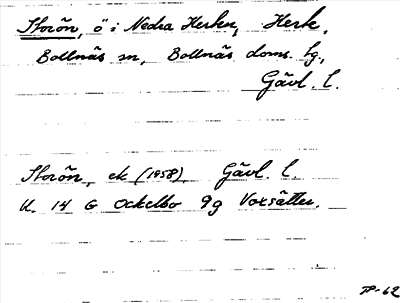 Storön, ö i Nedra Herken, Herk,
Bollnäs sn, Bollnäs doms. hg.,
Gävl. l.
Storön, ek (1958) Gävl. l.
K. 14 G Ockelbo 9g Voxsätter.
-62